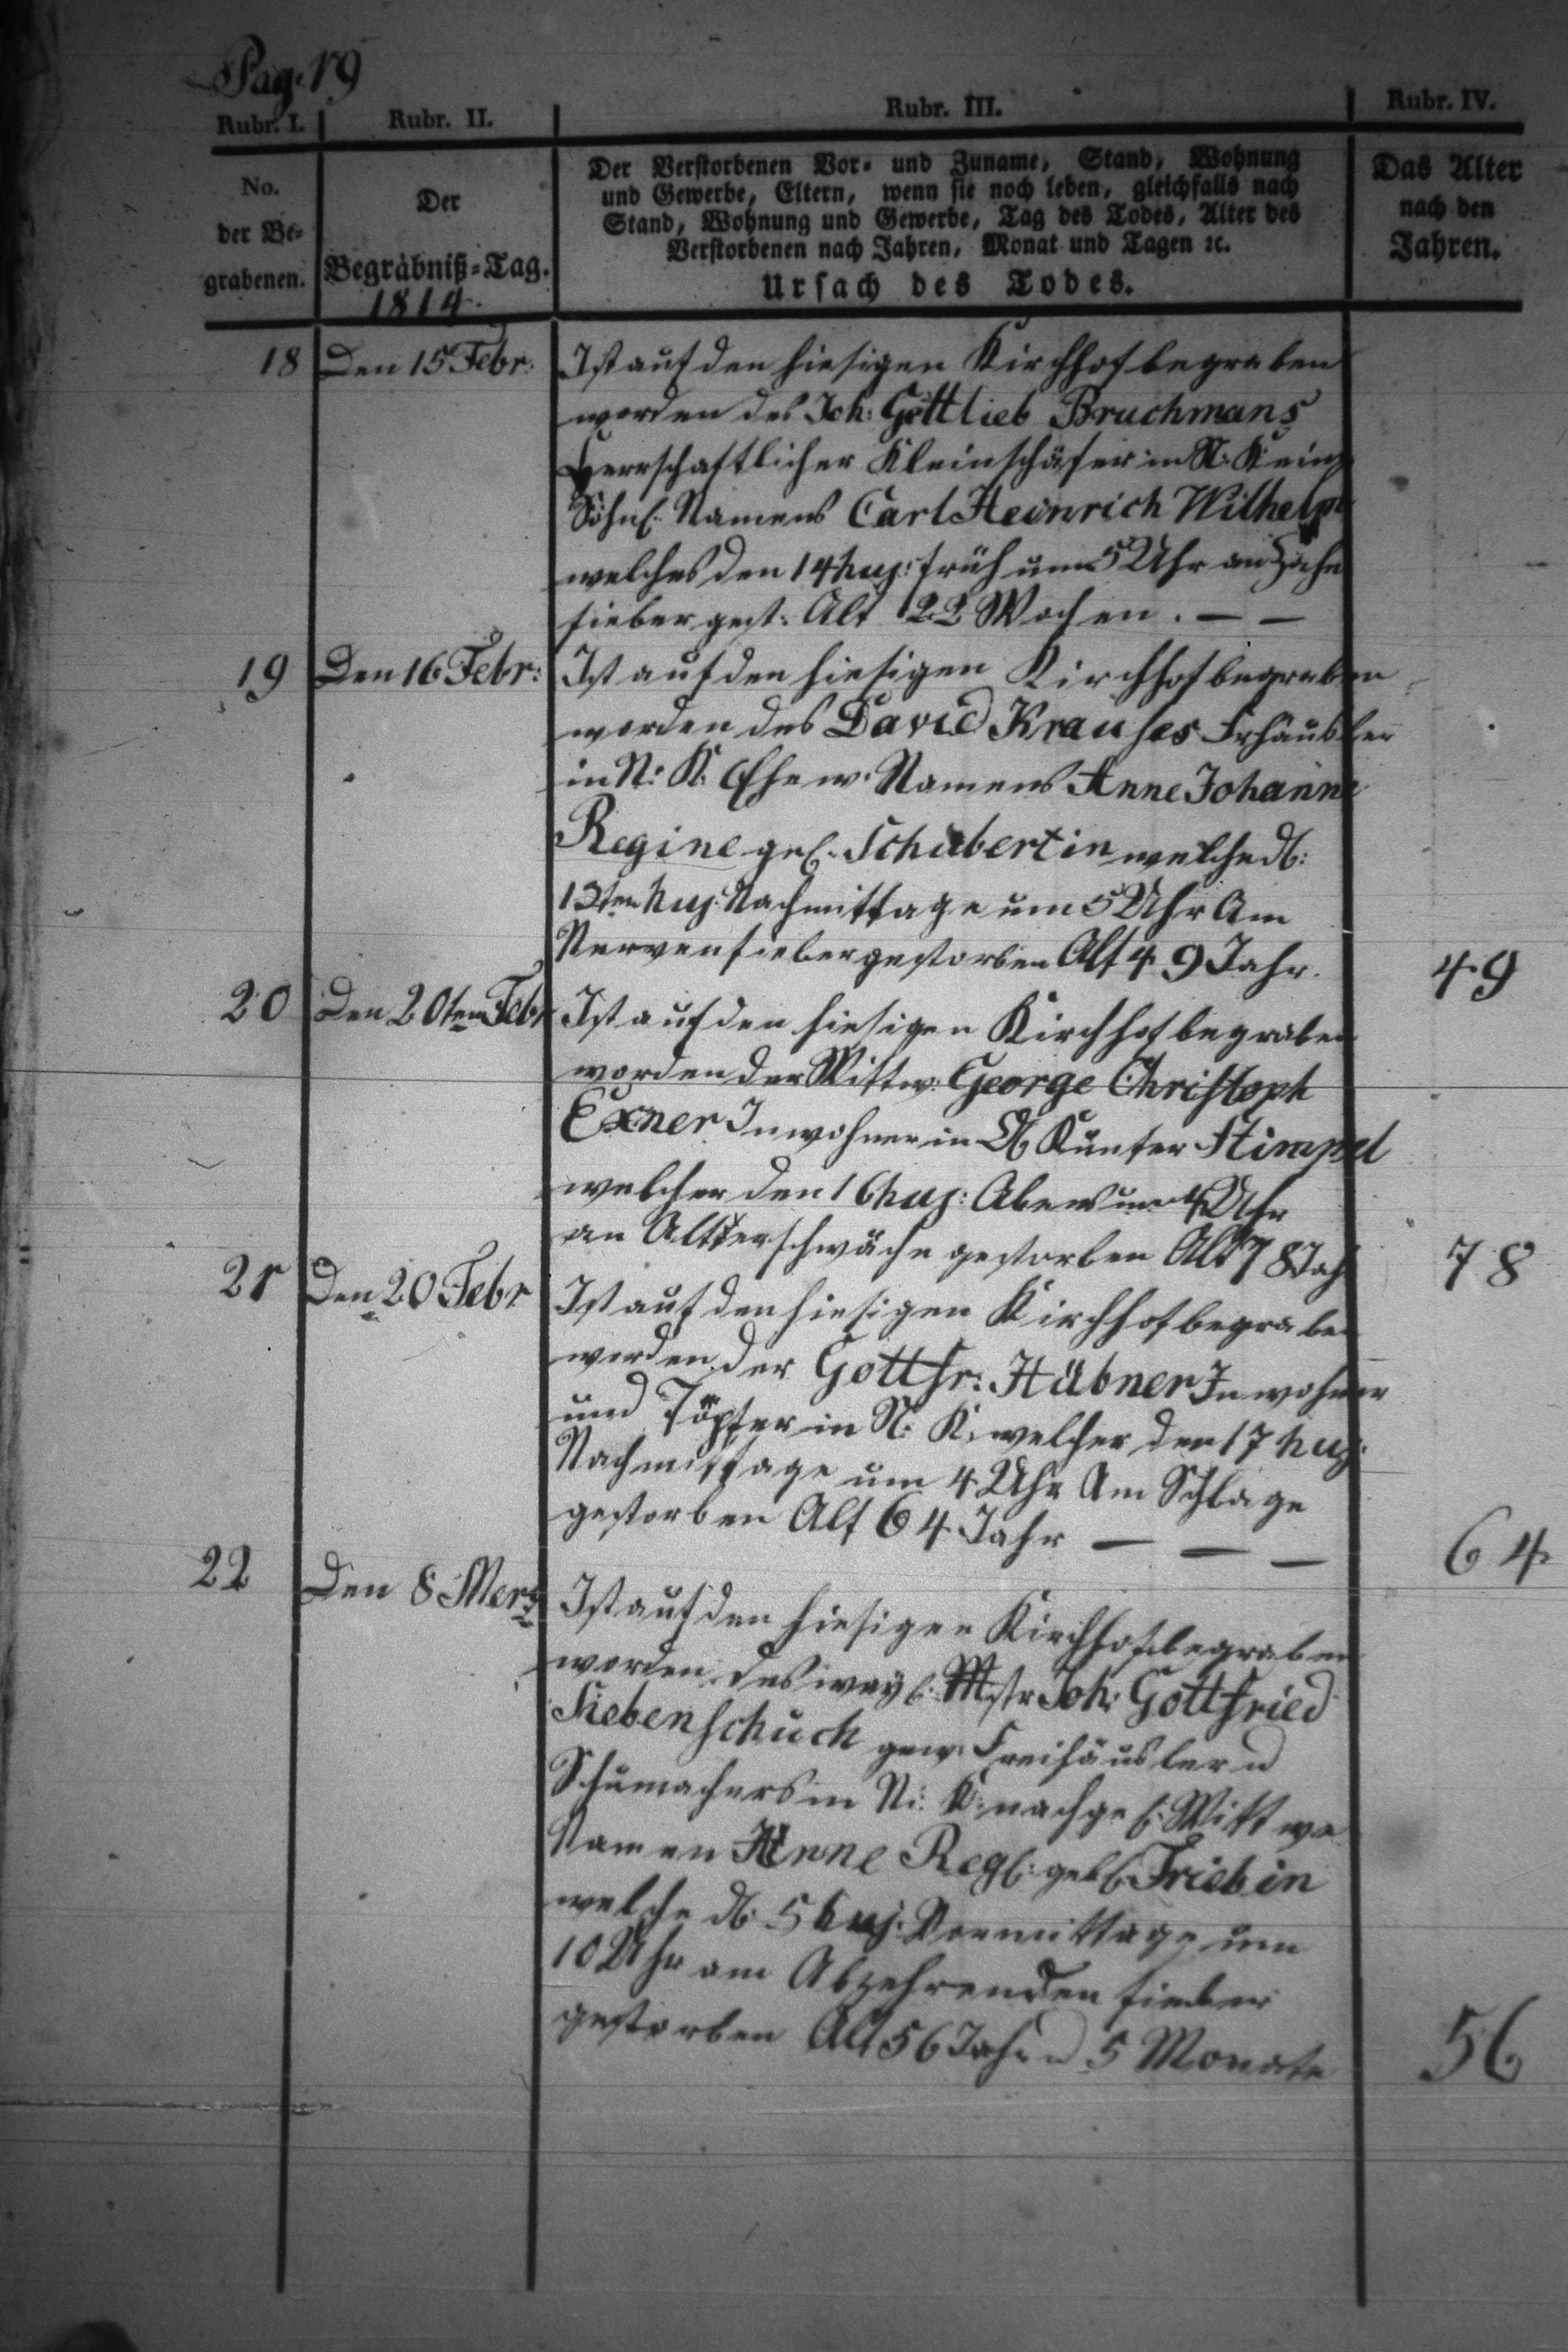 Pag. 19
Rubr. I. Rubr. II. Rubr. III. Rubr. IV.
No. der Be- grabenen.
Der Begräbniß-Tag. 1814.
Der Verstorbenen Vor- und Zuname, Stand, Wohnung
und Gewerbe, Eltern, wenn sie noch leben, gleichfalls nach
Stand, Wohnung und Gewerbe, Tag des Todes, Alter des
Verstorbenen nach Jahren, Monat und Tagen ꝛc.
Ursach des Todes.
Das Alter nach den Jahren.
18 Den 15 Febr: Ist auf den hiesigen Kirchhof begraben
worden des Joh: Gottlieb Bruchmans
Herrschaftlicher Kleinschäfer in N:
Söhnl. Namens Carl Heinrich Wilhelm
welches den 14 huj: früh um 5 Uhr an Zahn
fieber gest: Alt 22 Wochen. — —
19 Den 16 Febr: Ist auf den hiesigen Kirchhof begraben
worden des David Krauses Frhäusler
in N: K. Ehew. Namens Anne Johanne
Regine geb. Schubertin welche d:
13ten huj. Nachmittage um 5 Uhr Am
Nervenfieber gestorben Alt 49 Jahr. 49
20 Den 20ten Febr Ist auf den hiesigen Kirchhof begraben
worden der Wittw: George Christoph
Exner Inwohner in
welcher den 16 huj: Abends um 4 Uhr
an Altterschwäche gestorben Alt 78 Jah 78
21 Den 20 Febr Ist auf den hiesigen Kirchhof begraben
worden der Gottfr: Hübner Inwohner
und Töpfer in N: K. welcher den 17 huj:
Nachmittage um 4 Uhr Am Schlage
gestorben Alt 64 Jahr — — — 64
22 Den 8 Merz Ist auf den hiesigen Kirchhof begraben
worden des weyl: Mstr Joh: Gottfried
Siebenschuch gew: Freihäusler u
Schumachers in Ni: K: nachgel: Wittwe
Namen Anne Regl: geb: Friebin
welche d: 5 huj: Vormittage um
10 Uhr am Abzehrenden fieber
gestorben Alt 56 Jahr u 5 Monate 56